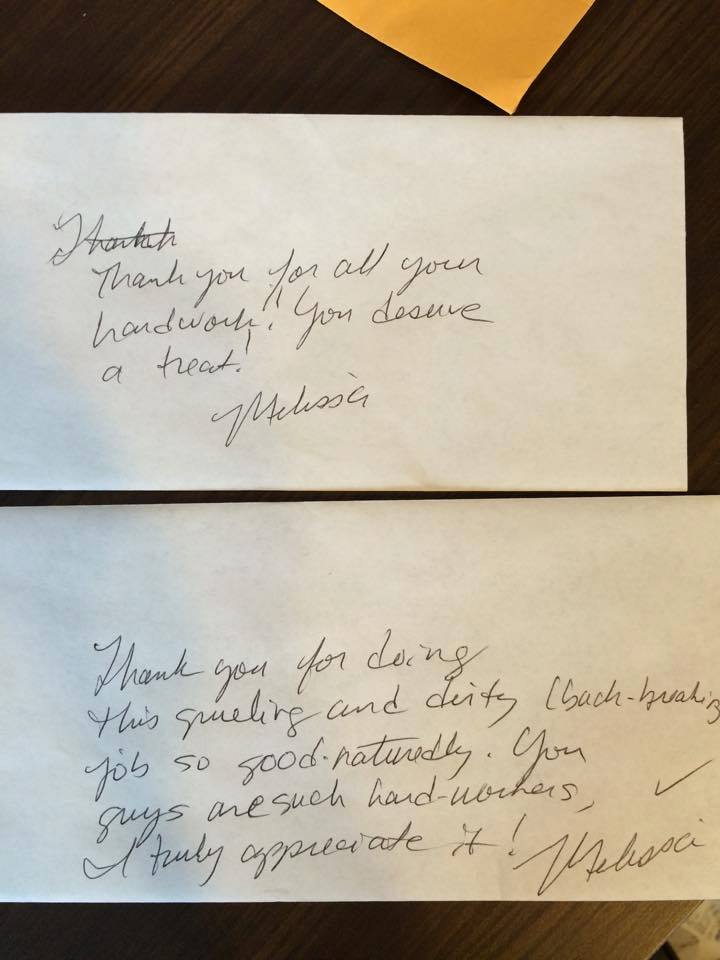 Thank
Thank you for all your
hardwork! You deserve
a treat!
Melissa
Thank you for doing
this grueling and dirty (back-breaking
job so good-naturedly. You
guys are such hard-workers,
I truly appreciate it!
Melissa